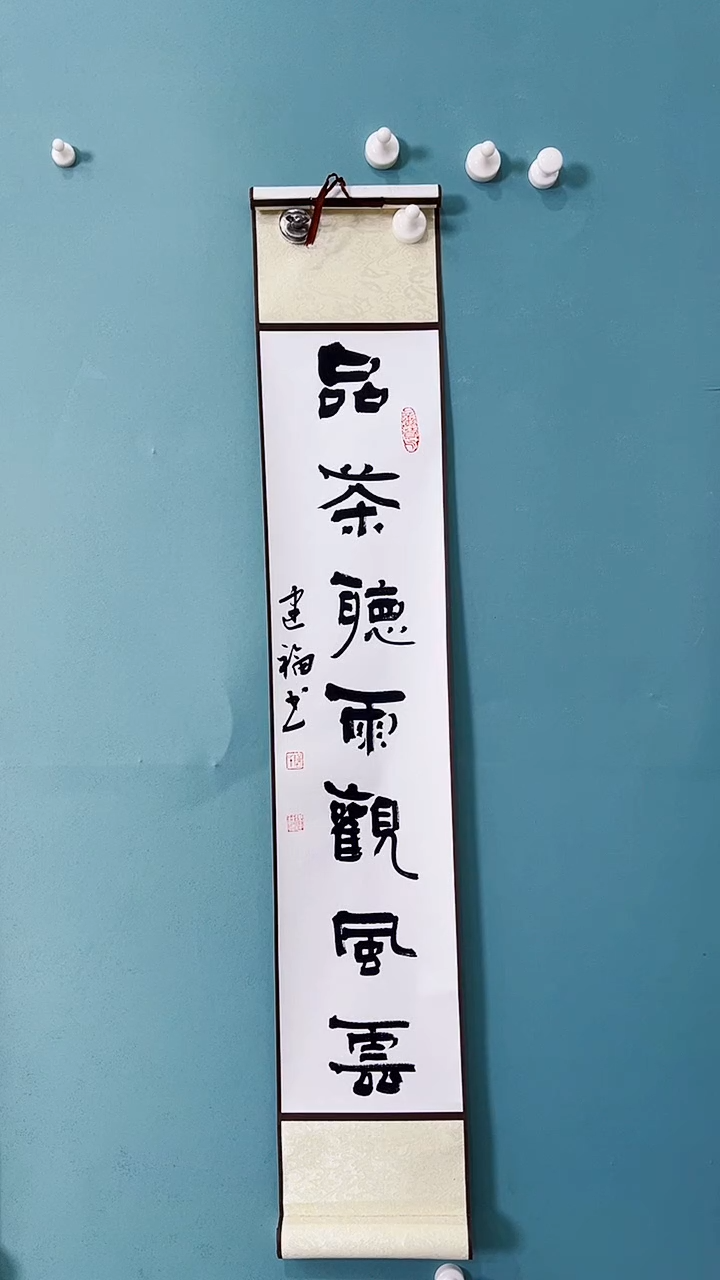 品茶聽雨觀風雲
建福书